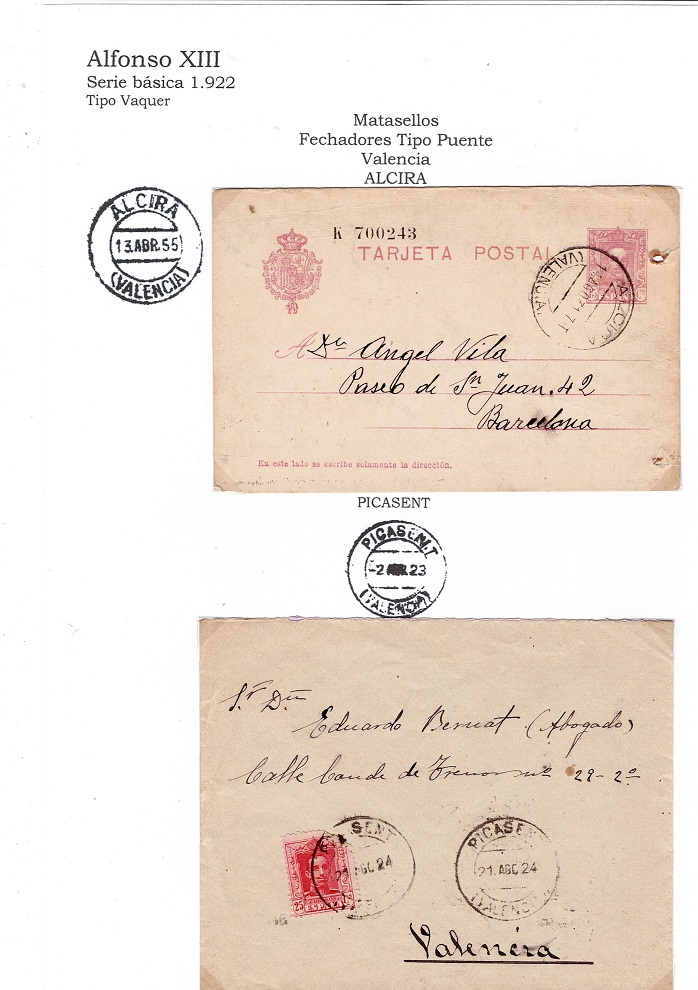 Alfonso XIII
Serie básica 1.922
Tipo Vaquer
Matasellos
Fechadores Tipo Puente
Valencia
ALCIRA
ALCIRA
13.ABR.55
(VALENCIA)
K 700243
TARJETA POSTAL
ALCIRA
(VALENCIA)
A Dn Angel Vila
Paseo de Sn Juan. 42
Barcelona
En este lado se escribe solamente la dirección.
PICASENT
PICASENT
-2 23
(VALENCIA)
Sr Dn
Eduardo Bernat (Abogado)
Calle Conde de Trenor nº 29-2º
PICASENT
21 AGO 24
25
PICASENT
21. AGO 24
(VALENCIA)
Valencia